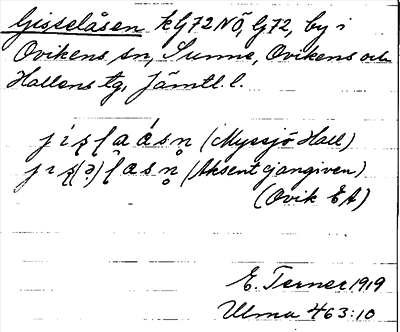 Gisselåsen kG72NÖ, G72, by i
Ovikens sn, Sunne, Ovikens och
Hallens tg, Jämtl. l.
(Myssjö Hall)
(Aksent ej angiven)
(Ovik EA)
E. Terner 1919
Ulma 463:10